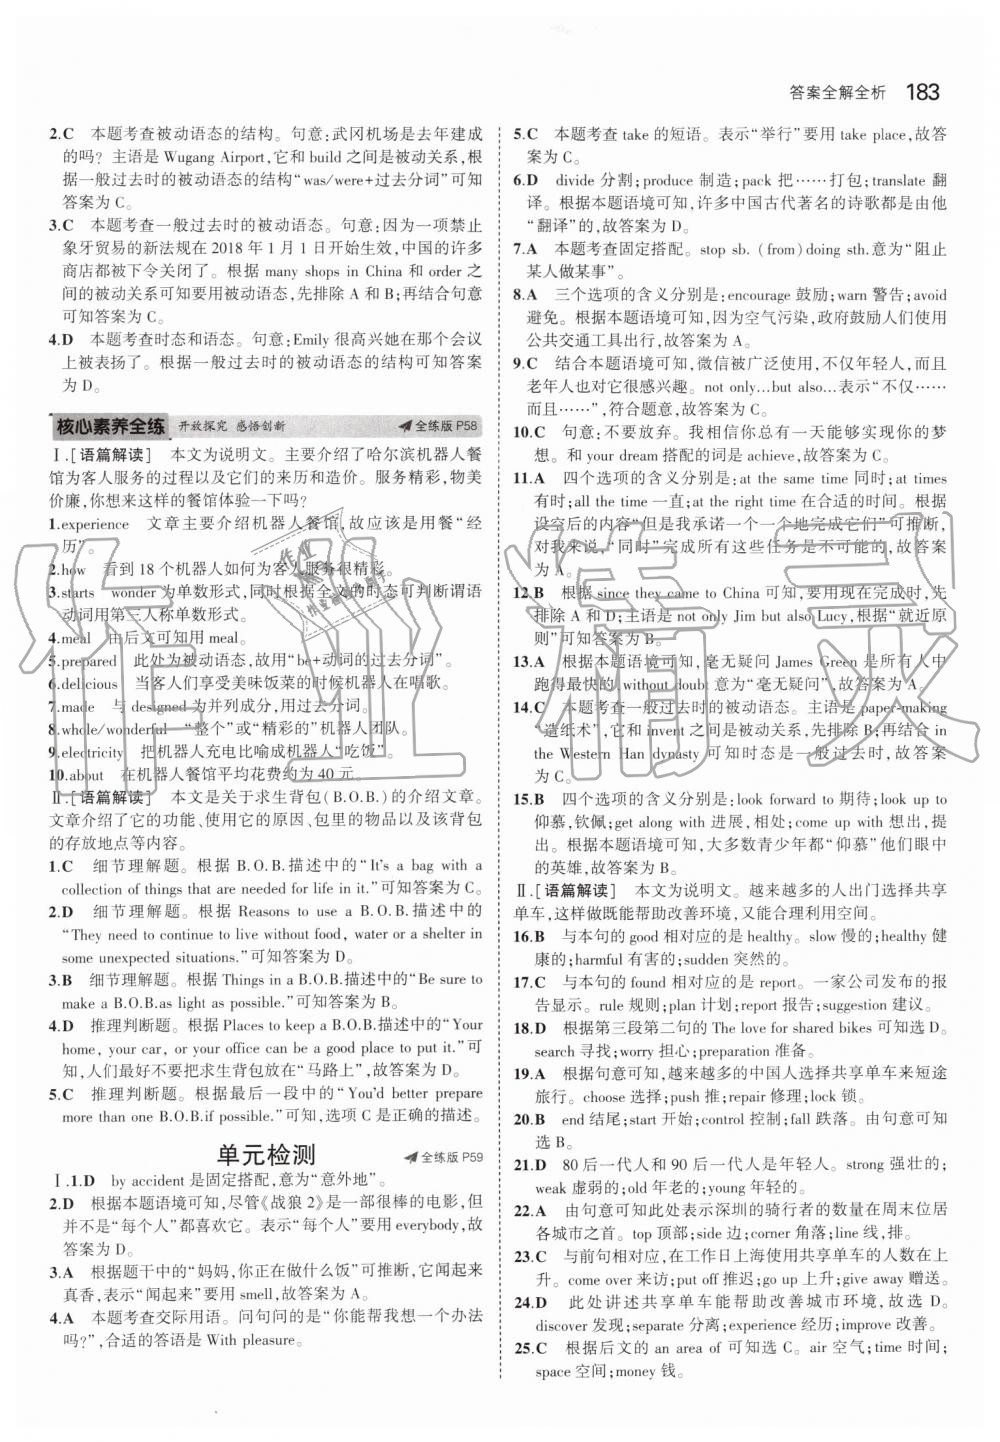 答案全解全析 183
2.C 本题考查被动语态的结构。句意:武冈机场是去年建成
的吗? 主语是 Wugang Airport,它和 build 之间是被动关系,根
据一般过去时的被动语态的结构“was/were+过去分词”可知
答案为 C。
3.C 本题考查一般过去时的被动语态。句意:因为一项禁止
象牙贸易的新法规在 2018 年 1 月 1 日开始生效,中国的许多
商店都被下令关闭了。根据 many shops in China 和 order 之
间的被动关系可知要用被动语态,先排除 A 和 B;再结合句意
可知答案为 C。
4.D 本题考查时态和语态。句意:Emily 很高兴她在那个会议
上被表扬了。根据一般过去时的被动语态的结构可知答案
为 D。
核心素养全练 开放探究 感悟创新 全练版 P58
Ⅰ.[语篇解读] 本文为说明文。主要介绍了哈尔滨机器人餐
馆为客人服务的过程以及它们的来历和造价。服务精彩,物美
价廉,你想来这样的餐馆体验一下吗?
1.experience 文章主要介绍机器人餐馆,故应该是用餐“经
历”。
2.how 看到 18 个机器人如何为客人服务很精彩。
3.starts wonder 为单数形式,同时根据全文的时态可判断谓语
动词用第三人称单数形式。
4.meal 由后文可知用 meal。
5.prepared 此处为被动语态,故用“be+动词的过去分词”。
6.delicious 当客人们享受美味饭菜的时候机器人在唱歌。
7.made 与 designed 为并列成分,用过去分词。
8.whole/wonderful “整个”或“精彩的”机器人团队。
9.electricity 把机器人充电比喻成机器人“吃饭”。
10.about 在机器人餐馆平均花费约为 40 元。
Ⅱ.[语篇解读] 本文是关于求生背包(B.O.B.)的介绍文章。
文章介绍了它的功能、使用它的原因、包里的物品以及该背包
的存放地点等内容。
1.C 细节理解题。根据 B.O.B.描述中的“It's a bag with a
collection of things that are needed for life in it.”可知答案为 C。
2.D 细节理解题。根据 Reasons to use a B.O.B.描述中的
“They need to continue to live without food, water or a shelter in
some unexpected situations.”可知答案为 D。
3.B 细节理解题。根据 Things in a B.O.B.描述中的“Be sure to
make a B.O.B.as light as possible.”可知答案为 B。
4.D 推理判断题。根据 Places to keep a B.O.B.描述中的“Your
home, your car, or your office can be a good place to put it.”可
知,人们最好不要把求生背包放在“马路上”,故答案为 D。
5.C 推理判断题。根据最后一段中的“You'd better prepare
more than one B.O.B.if possible.”可知,选项 C 是正确的描述。
单元检测 全练版 P59
Ⅰ.1.D by accident 是固定搭配,意为“意外地”。
2.D 根据本题语境可知,尽管《战狼 2》是一部很棒的电影,但
并不是“每个人”都喜欢它。表示“每个人”要用 everybody,故
答案为 D。
3.A 根据题干中的“妈妈,你正在做什么饭”可推断,它闻起来
真香,表示“闻起来”要用 smell,故答案为 A。
4.A 本题考查交际用语。问句问的是“你能帮我想一个办法
吗?”,合适的答语是 With pleasure.。
5.C 本题考查 take 的短语。表示“举行”要用 take place,故答
案为 C。
6.D divide 分割;produce 制造;pack 把……打包;translate 翻
译。根据本题语境可知,许多中国古代著名的诗歌都是由他
“翻译”的,故答案为 D。
7.A 本题考查固定搭配。stop sb. (from)doing sth.意为“阻止
某人做某事”。
8.A 三个选项的含义分别是:encourage 鼓励;warn 警告;avoid
避免。根据本题语境可知,因为空气污染,政府鼓励人们使用
公共交通工具出行,故答案为 A。
9.C 结合本题语境可知,微信被广泛使用,不仅年轻人,而且
老年人也对它很感兴趣。not only…but also…表示“不仅……
而且……”,符合题意,故答案为 C。
10.C 句意:不要放弃。我相信你总有一天能够实现你的梦
想。和 your dream 搭配的词是 achieve,故答案为 C。
11.A 四个选项的含义分别是:at the same time 同时;at times
有时;all the time 一直;at the right time 在合适的时间。根据
设空后的内容“但是我承诺一个一个地完成它们”可推断,
对我来说,“同时”完成所有这些任务是不可能的,故答案为 A。
12.B 根据 since they came to China 可知,要用现在完成时,先
排除 A 和 D;主语是 not only Jim but also Lucy,根据“就近原
则”可知答案为 B。
13.A 根据本题语境可知,毫无疑问 James Green 是所有人中
跑得最快的,without doubt 意为“毫无疑问”,故答案为 A。
14.C 本题考查一般过去时的被动语态。主语是 paper-making
“造纸术”,它和 invent 之间是被动关系,先排除 B;再结合 in
the Western Han dynasty 可知时态是一般过去时,故答案
为 C。
15.B 四个选项的含义分别是:look forward to 期待;look up to
仰慕,钦佩;get along with 进展,相处;come up with 想出,提
出。根据本题语境可知,大多数青少年都“仰慕”他们眼中
的英雄,故答案为 B。
Ⅱ.[语篇解读] 本文为说明文。越来越多的人出门选择共享
单车,这样做既能帮助改善环境,又能合理利用空间。
16.B 与本句的 good 相对应的是 healthy。slow 慢的;healthy 健
康的;harmful 有害的;sudden 突然的。
17.C 与本句的 found 相对应的是 report。一家公司发布的报
告显示。rule 规则;plan 计划;report 报告;suggestion 建议。
18.D 根据第三段第二句的 The love for shared bikes 可知选 D。
search 寻找;worry 担心;preparation 准备。
19.A 根据句意可知,越来越多的中国人选择共享单车来短途
旅行。choose 选择;push 推;repair 修理;lock 锁。
20.B end 结尾;start 开始;control 控制;fall 跌落。由句意可知
选 B。
21.D 80 后一代人和 90 后一代人是年轻人。strong 强壮的;
weak 虚弱的;old 年老的;young 年轻的。
22.A 由句意可知此处表示深圳的骑行者的数量在周末位居
各城市之首。top 顶部;side 边;corner 角落;line 线,排。
23.C 与前句相对应,在工作日上海使用共享单车的人数在上
升。come over 来访;put off 推迟;go up 上升;give away 赠送。
24.D 此处讲述共享单车能帮助改善城市环境,故选 D。
discover 发现;separate 分离;experience 经历;improve 改善。
25.C 根据后文的 an area of 可知选 C。air 空气;time 时间;
space 空间;money 钱。
作业精灵